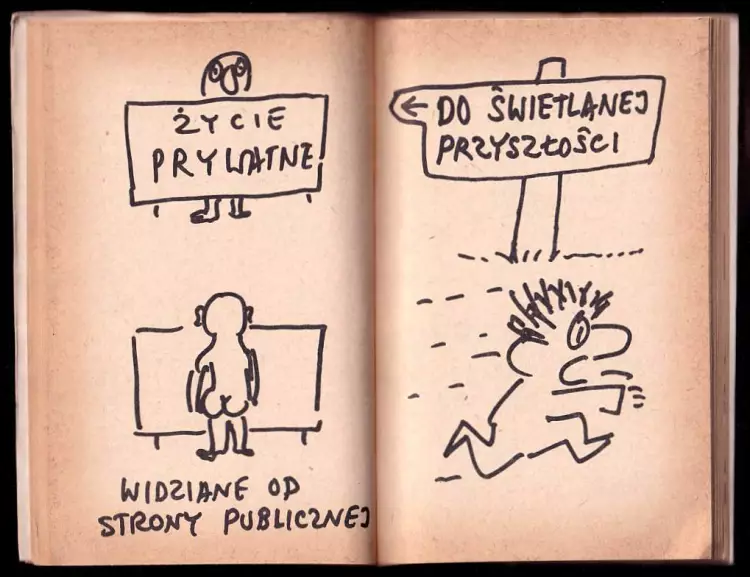 ŻYCIE
PRYWATNE
WIDZIANE OD
STRONY PUBLICZNEJ
DO ŚWIETLANEJ
PRZYSZŁOŚCI